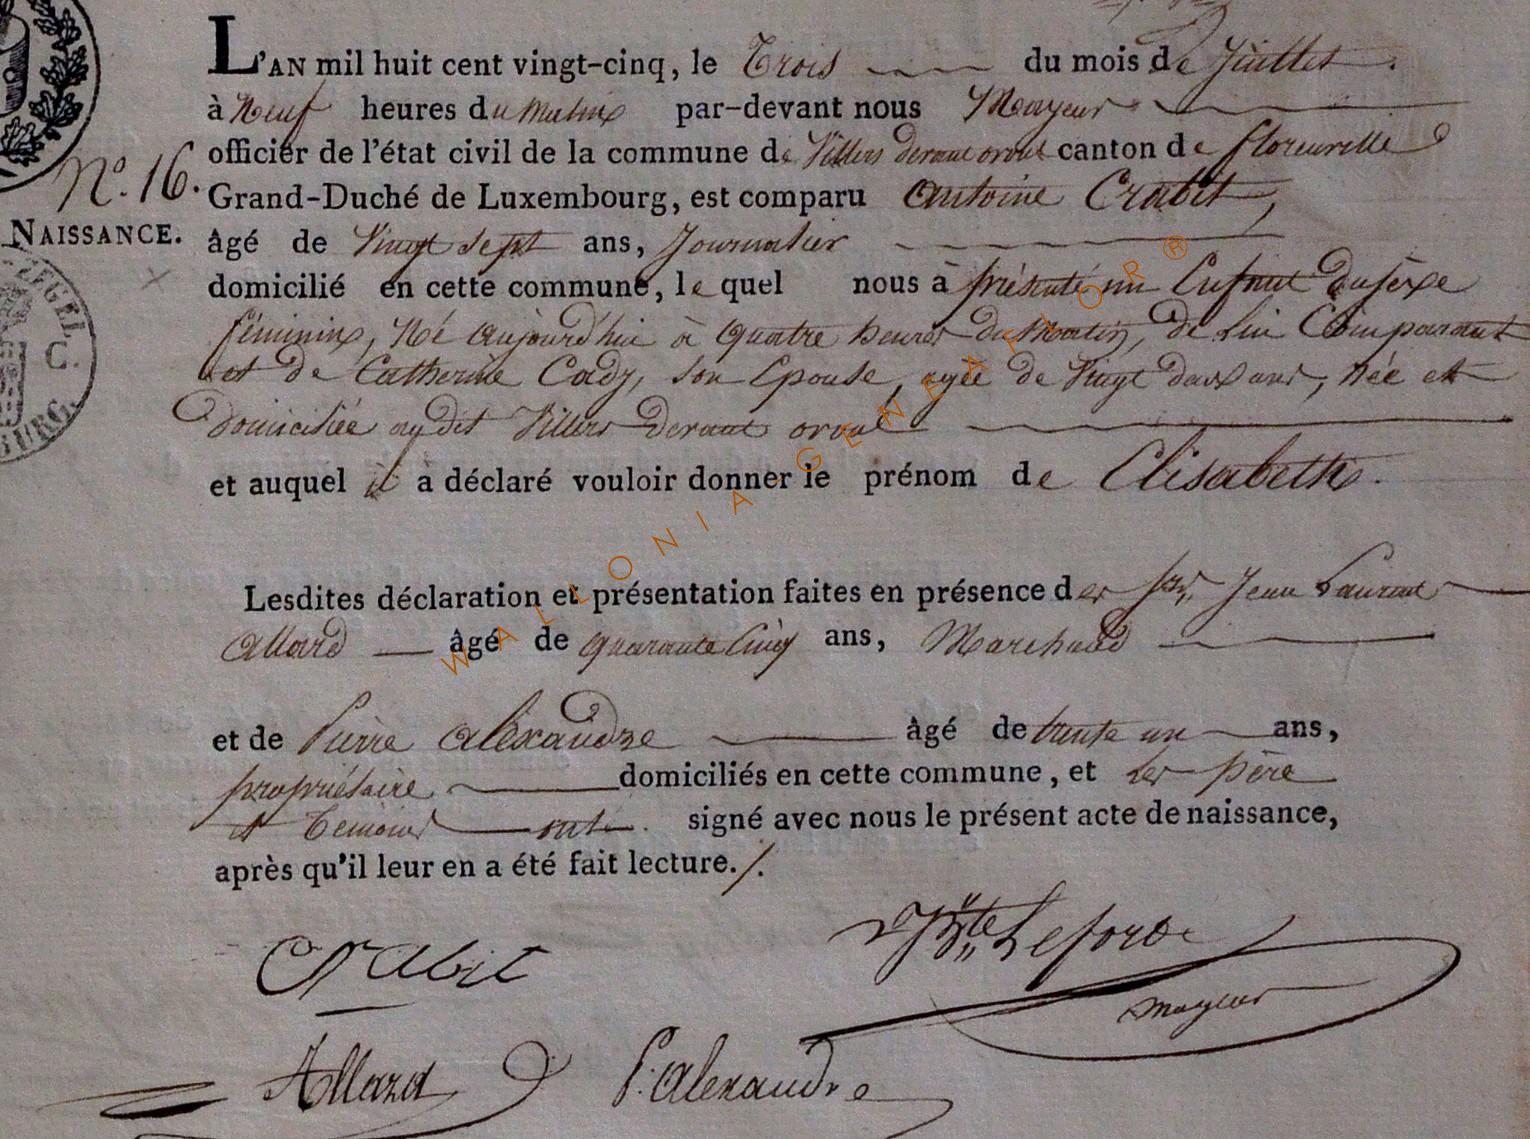 L'AN mil huit cent vingt-cinq, le Trois du mois de Juillet.
à Neuf heures du Matin par-devant nous Mayeur
officier de l'état civil de la commune de Villers devant orval canton de florenville
No. 16.
Grand-Duché de Luxembourg, est comparu antoine Crabit,
NAISSANCE.
âgé de Vingt Sept ans, Journalier
domicilié en cette commune, le quel nous à présenté un Enfant Du sexe
féminin, Né aujourd'hui à quatre heures du Matin, de lui Comparant
et de Catherine Cady, son Epouse, agée de Vingt deux ans, née et
domiciliée audit Villers devant orval
et auquel il à déclaré vouloir donner le prénom de Elisabeth.
Lesdites déclaration et présentation faites en présence des Srs Jean Laurent
allard âgé de quarante Cinq ans, Marchand
et de Pierre alexandre âgé de trente un ans,
propriétaire domiciliés en cette commune, et les père
et temoins ont signé avec nous le présent acte de naissance,
après qu'il leur en a été fait lecture./.
Crabit
Lefort
mayeur
Allard P. alexandre
WALLONIA GENEAFLOR ®
ZEGEL
C.
BURG.